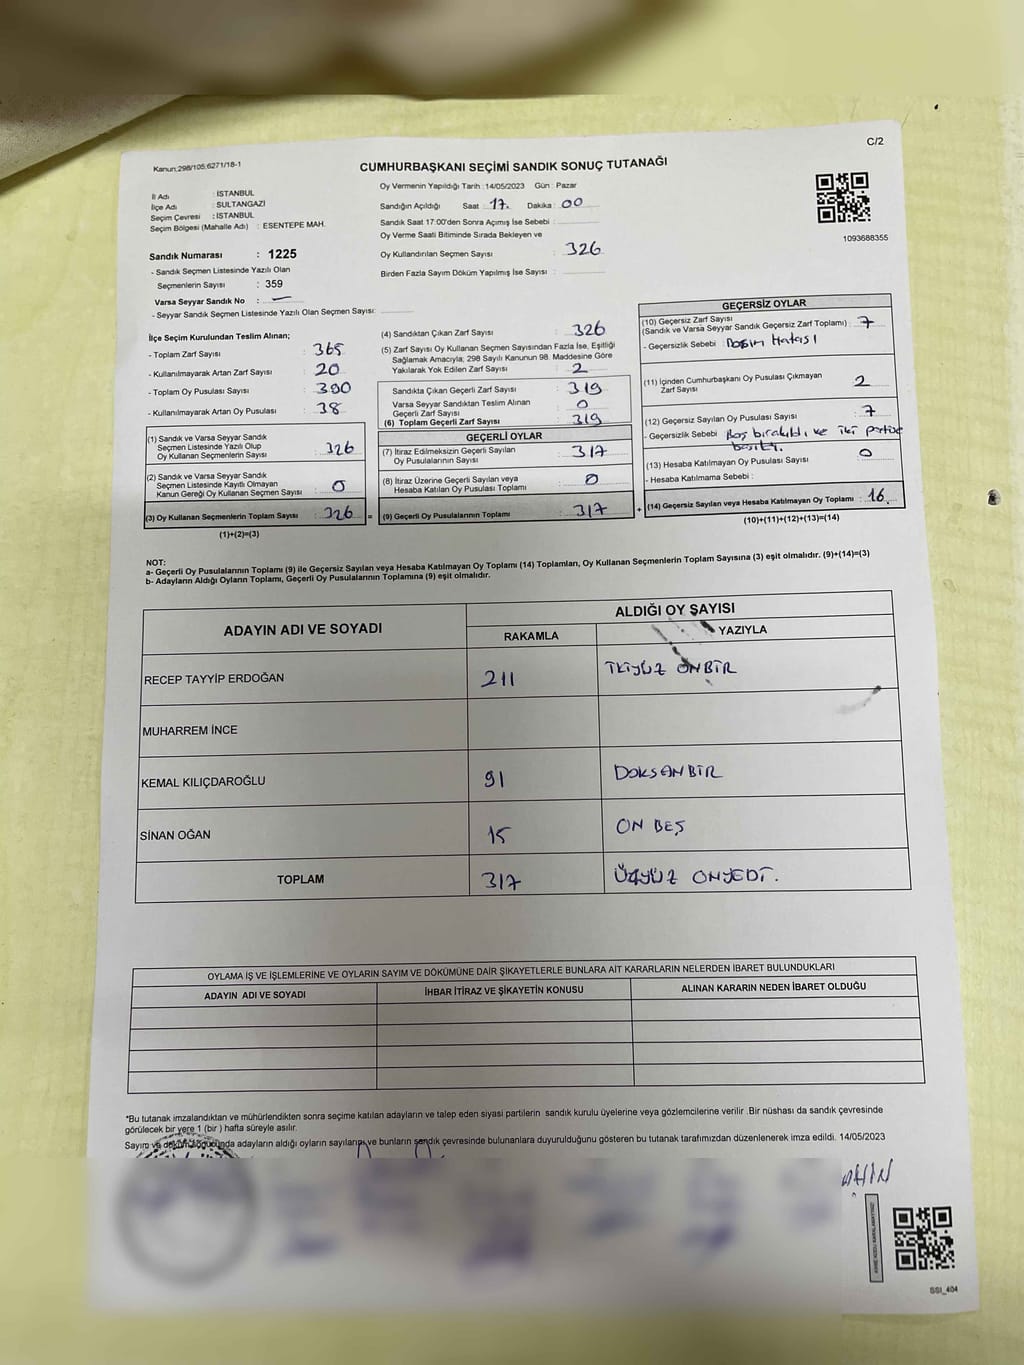 C/2
Kanun:298/105;6271/18-1
CUMHURBAŞKANI SEÇİMİ SANDIK SONUÇ TUTANAĞI
İl Adı : İSTANBUL
İlçe Adı : SULTANGAZİ
Seçim Çevresi : İSTANBUL
Seçim Bölgesi (Mahalle Adı) : ESENTEPE MAH.
Oy Vermenin Yapıldığı Tarih :14/05/2023 Gün : Pazar
Sandığın Açıldığı Saat : 17. Dakika : 00
Sandık Saat 17:00'den Sonra Açımış İse Sebebi :
Oy Verme Saati Bitiminde Sırada Bekleyen ve
Oy Kullandırılan Seçmen Sayısı : 326
Birden Fazla Sayım Döküm Yapılmış İse Sayısı :
1093688355
Sandık Numarası : 1225
- Sandık Seçmen Listesinde Yazılı Olan
Seçmenlerin Sayısı : 359
Varsa Seyyar Sandık No : —
- Seyyar Sandık Seçmen Listesinde Yazılı Olan Seçmen Sayısı:
İlçe Seçim Kurulundan Teslim Alınan;
- Toplam Zarf Sayısı : 365
- Kullanılmayarak Artan Zarf Sayısı : 20
- Toplom Oy Pusulası Sayısı : 390
- Kullanılmayarak Artan Oy Pusulası : 38
(1) Sandık ve Varsa Seyyar Sandık
Seçmen Listesinde Yazılı Olup
Oy Kullanan Seçmenlerin Sayısı : 326
(2) Sandık ve Varsa Seyyar Sandık
Seçmen Listesinde Kayıtlı Olmayan
Kanun Gereği Oy Kullanan Seçmen Sayısı : 0
(3) Oy Kullanan Seçmenlerin Toplam Sayısı : 326 =
(1)+(2)=(3)
(4) Sandıktan Çıkan Zarf Sayısı : 326
(5) Zarf Sayısı Oy Kullanan Seçmen Sayısından Fazla İse, Eşitliği
Sağlamak Amacıyla; 298 Sayılı Kanunun 98. Maddesine Göre
Yakılarak Yok Edilen Zarf Sayısı : 2
Sandıkta Çıkan Geçerli Zarf Sayısı : 319
Varsa Seyyar Sandıktan Teslim Alınan
Geçerli Zarf Sayısı : 0
(6) Toplam Geçerli Zarf Sayısı : 319
GEÇERLİ OYLAR
(7) İtiraz Edilmeksizin Geçerli Sayılan
Oy Pusulalarının Sayısı : 317
(8) İtiraz Üzerine Geçerli Sayılan veya
Hesaba Katılan Oy Pusulası Toplamı : 0
(9) Geçerli Oy Pusulalarının Toplamı : 317 +
GEÇERSİZ OYLAR
(10) Geçersiz Zarf Sayısı
(Sandık ve Varsa Seyyar Sandık Geçersiz Zarf Toplamı) : 7
- Geçersizlik Sebebi : Basım Hatası
(11) İçinden Cumhurbaşkanı Oy Pusulası Çıkmayan
Zarf Sayısı : 2
(12) Geçersiz Sayılan Oy Pusulası Sayısı : 7
- Geçersizlik Sebebi : Boş bırakıldı ve iki partiye
basıldı.
(13) Hesaba Katılmayan Oy Pusulası Sayısı : 0
- Hesaba Katılmama Sebebi :
(14) Geçersiz Sayılan veya Hesaba Katılmayan Oy Toplamı : 16
(10)+(11)+(12)+(13)=(14)
NOT:
a- Geçerli Oy Pusulalarının Toplamı (9) ile Geçersiz Sayılan veya Hesaba Katılmayan Oy Toplamı (14) Toplamları, Oy Kullanan Seçmenlerin Toplam Sayısına (3) eşit olmalıdır. (9)+(14)=(3)
b- Adayların Aldığı Oyların Toplamı, Geçerli Oy Pusulalarının Toplamına (9) eşit olmalıdır.
ADAYIN ADI VE SOYADI
ALDIĞI OY SAYISI
RAKAMLA YAZIYLA
RECEP TAYYİP ERDOĞAN 211 İKİYÜZ ONBİR
MUHARREM İNCE
KEMAL KILIÇDAROĞLU 91 DOKSANBİR
SİNAN OĞAN 15 ON BEŞ
TOPLAM 317 ÜÇYÜZ ONYEDİ.
OYLAMA İŞ VE İŞLEMLERİNE VE OYLARIN SAYIM VE DÖKÜMÜNE DAİR ŞİKAYETLERLE BUNLARA AİT KARARLARIN NELERDEN İBARET BULUNDUKLARI
ADAYIN ADI VE SOYADI İHBAR İTİRAZ VE ŞİKAYETİN KONUSU ALINAN KARARIN NEDEN İBARET OLDUĞU
*Bu tutanak imzalandıktan ve mühürlendikten sonra seçime katılan adayların ve talep eden siyasi partilerin sandık kurulu üyelerine veya gözlemcilerine verilir .Bir nüshası da sandık çevresinde
görülecek bir yere 1 (bir ) hafta süreyle asılır.
Sayım ve döküm sonucunda adayların aldığı oyların sayıların ve bunların sandık çevresinde bulunanlara duyurulduğunu gösteren bu tutanak tarafımızdan düzenlenerek imza edildi. 14/05/2023
SSI_404